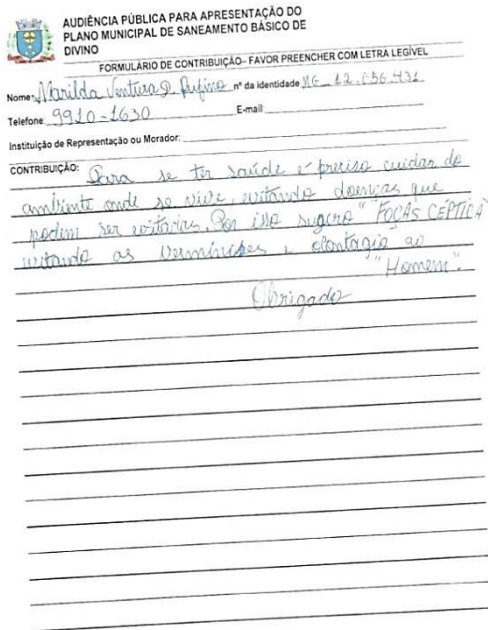 AUDIÊNCIA PÚBLICA PARA APRESENTAÇÃO DO
PLANO MUNICIPAL DE SANEAMENTO BÁSICO DE
DIVINO
FORMULÁRIO DE CONTRIBUIÇÃO- FAVOR PREENCHER COM LETRA LEGÍVEL
Nome: Marilda Ventura D. Rufino nº da identidade MG-12.656.431
Telefone: 9910-1630 E-mail:
Instituição de Representação ou Morador:
CONTRIBUIÇÃO: Para se ter saúde é preciso cuidar do
ambiente onde se vive, evitando doenças que
podem ser evitadas. Por isso sugiro "FOÇAS CÉPTICA"
evitando as verminoses e contagio ao
"Homem".
Obrigado